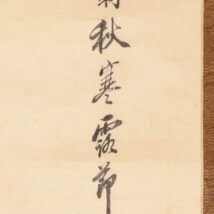 秋寒露節